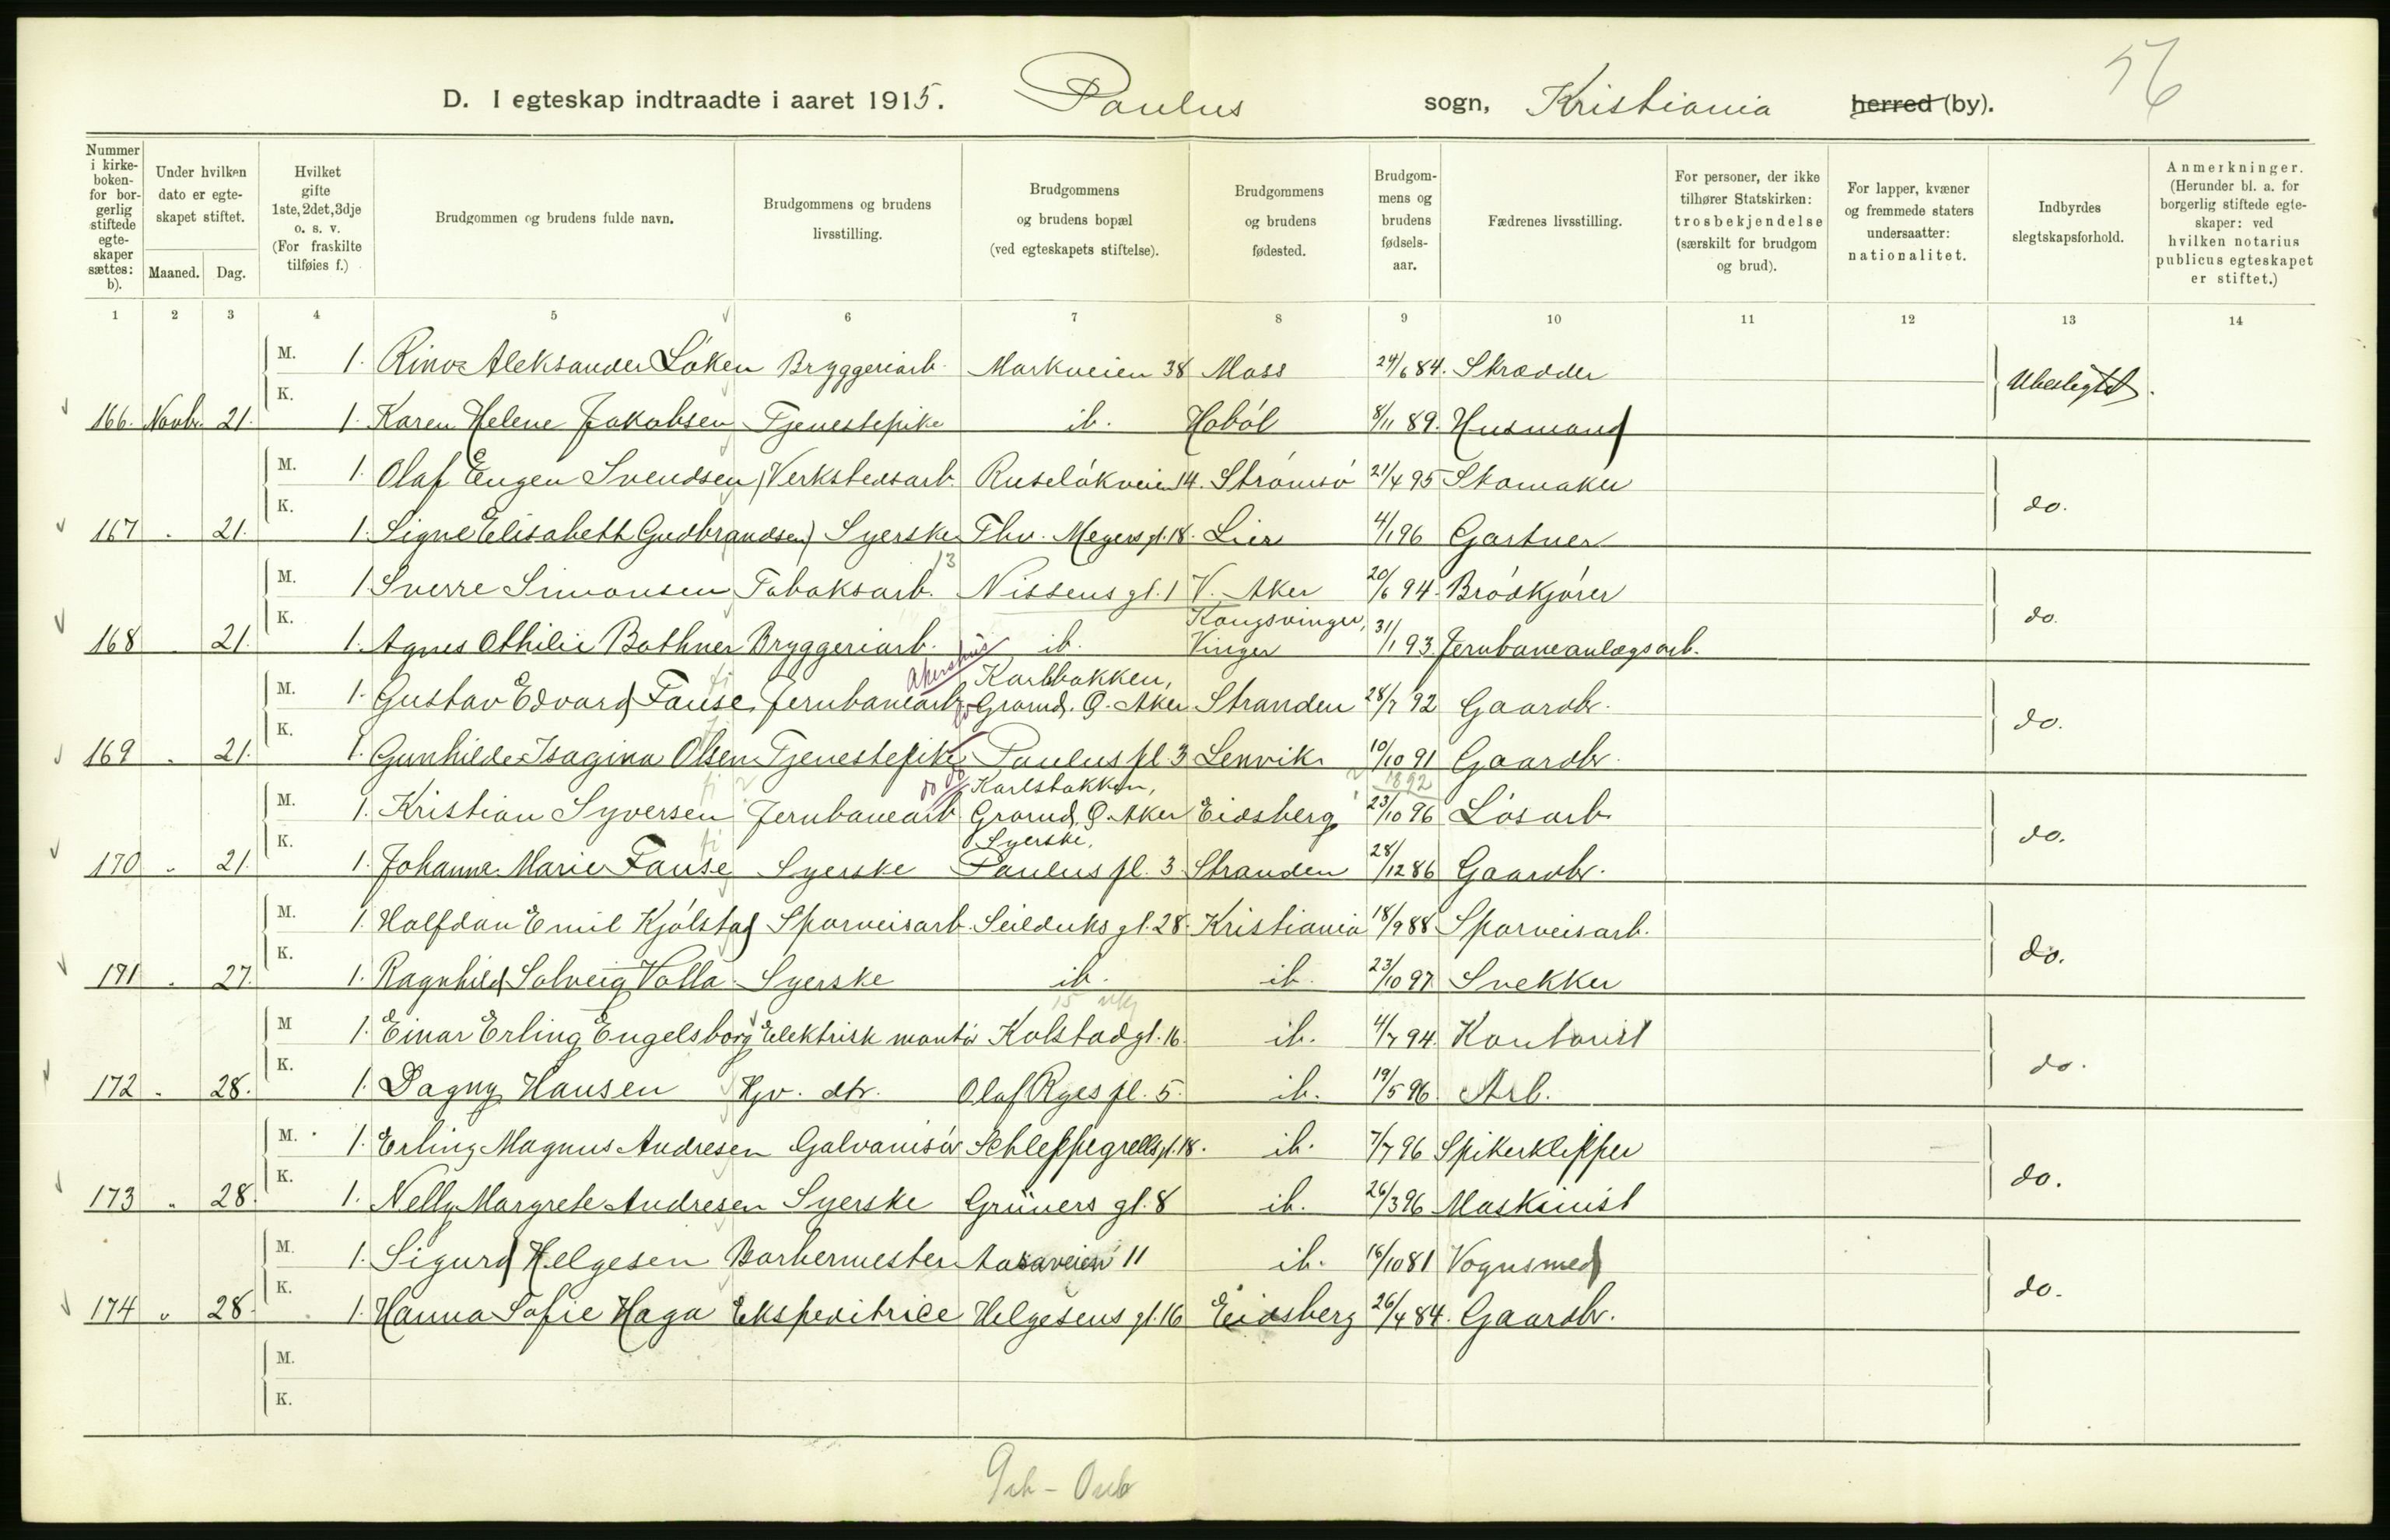 56
D. I egteskap indtraadte i aaret 1915. Paulus sogn, Kristiania herred (by).
Nummer i kirkeboken- for borgerlig stiftede egteskaper sættes: b).
Under hvilken dato er egteskapet stiftet.
Maaned. Dag.
Hvilket gifte 1ste, 2det, 3dje o. s. v. (For fraskilte tilføies f.)
Brudgommen og brudens fulde navn.
Brudgommens og brudens livsstilling.
Brudgommens og brudens bopæl (ved egteskapets stiftelse).
Brudgommens og brudens fødested.
Brudgommens og brudens fødselsaar.
Fædrenes livsstilling.
For personer, der ikke tilhører Statskirken: trosbekjendelse (særskilt for brudgom og brud).
For lapper, kvæner og fremmede staters undersaatter: nationalitet.
Indbyrdes slegtskapsforhold.
Anmerkninger. (Herunder bl. a. for borgerlig stiftede egteskaper: ved hvilken notarius publicus egteskapet er stiftet.)
1 2 3 4 5 6 7 8 9 10 11 12 13 14
M. 1. Rinos Aleksander Löken Bryggeriarb. Markveien 38 Moss 24/6 84. Skrædder Ubeslegtet.
166. Novbr. 21. K. 1. Karen Helene Jakobsen Tjenestepike ib. Hoböl 8/11 89. Husmand
M. 1. Olaf Eugen Svendsen Verkstedsarb. Ruselökveien 14. Strömsö 21/4 95 Skomaker do.
167 " 21. K. 1. Signe Elisabeth Gudbrandsen Syerske Thv. Meyers gt. 18. Lier 4/1 96 Gartner
13
M. 1. Sverre Simonsen Tobaksarb. Nissens gt. 1 V. Aker 20/6 94. Brödkjörer do.
168 " 21. K. 1. Agnes Othilie Bothner Bryggeriarb. ib. Kongsvinger, Vinger 31/1 93. Jernbaneanlægsarb.
Akershus
M. 1. Gustav Edvard Fause Jernbanearb. Karlsbakken, Grorud. Ö. Aker Stranden 28/7 92 Gaardbr. do.
169 " 21. K. 1. Gunhilde Isagina Olsen Tjenestepike Paulus pl. 3 Lenvik 10/10 91 Gaardbr.
do do 1892
M. 1. Kristian Syversen Jernbanearb Karlsbakken, Grorud, Ö. Aker Eidsberg 23/10 96 Lösarb. do.
170 " 21. K. 1. Johanne Marie Fause Syerske Syerske, Paulus pl. 3 Stranden 28/12 86 Gaardbr.
M. 1. Halfdan Emil Kjölstad Sporveisarb. Seilduks gt. 28. Kristiania 18/9 88 Sporveisarb. do.
171 " 27. K. 1. Ragnhild Solveig Volla Syerske ib. ib. 23/10 97 Snekker
M 1. Einar Erling Engelsborg Elektrisk montör Kolstadgt. 16. ib. 4/7 94. Kontorist do.
172 " 28. K. 1. Dagny Hansen Hjv. dtr. Olaf Ryes pl. 5. ib. 19/5 96. Arb.
M. 1. Erling Magnus Andresen Galvanisör Schleppegrells gt. 18. ib. 7/7 96 Spikerklipper do.
173 " 28. K. 1. Nelly Margrete Andresen Syerske Grüners gt. 8 ib. 26/3 96 Maskinist
M. 1. Sigurd Helgesen Barbermester Aasaveien 11 ib. 16/10 81 Vognsmed do.
174 " 28. K. 1. Hanna Sofie Haga Ekspeditrice Helgesens gt. 16 Eidsberg 26/4 84. Gaardbr.
M.
K.